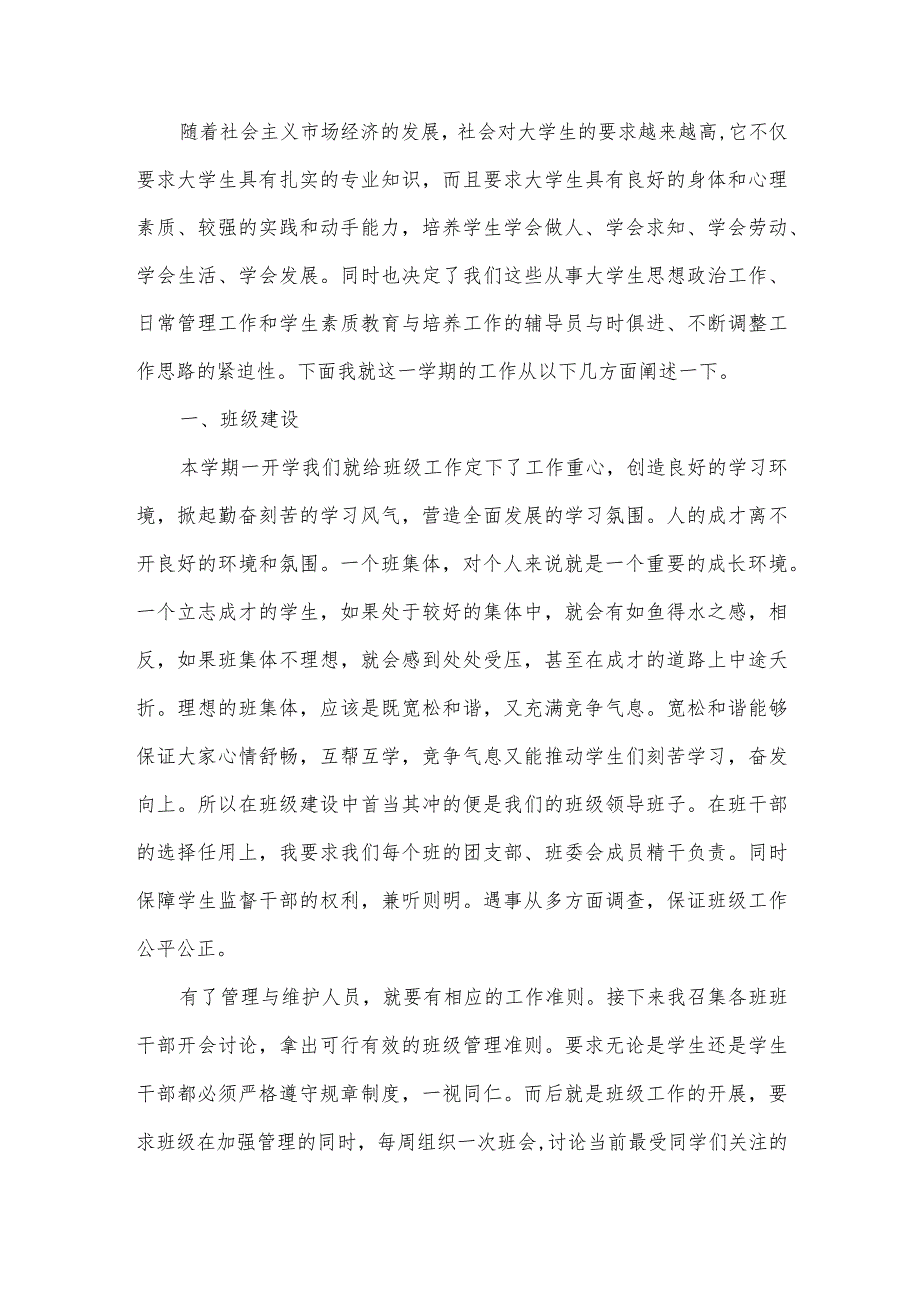 随着社会主义市场经济的发展，社会对大学生的要求越来越高,它不仅
要求大学生具有扎实的专业知识，而且要求大学生具有良好的身体和心理
素质、较强的实践和动手能力，培养学生学会做人、学会求知、学会劳动、
学会生活、学会发展。同时也决定了我们这些从事大学生思想政治工作、
日常管理工作和学生素质教育与培养工作的辅导员与时俱进、不断调整工
作思路的紧迫性。下面我就这一学期的工作从以下几方面阐述一下。
一、班级建设
本学期一开学我们就给班级工作定下了工作重心，创造良好的学习环
境，掀起勤奋刻苦的学习风气，营造全面发展的学习氛围。人的成才离不
开良好的环境和氛围。一个班集体，对个人来说就是一个重要的成长环境。
一个立志成才的学生，如果处于较好的集体中，就会有如鱼得水之感，相
反，如果班集体不理想，就会感到处处受压，甚至在成才的道路上中途夭
折。理想的班集体，应该是既宽松和谐，又充满竞争气息。宽松和谐能够
保证大家心情舒畅，互帮互学，竞争气息又能推动学生们刻苦学习，奋发
向上。所以在班级建设中首当其冲的便是我们的班级领导班子。在班干部
的选择任用上，我要求我们每个班的团支部、班委会成员精干负责。同时
保障学生监督干部的权利，兼听则明。遇事从多方面调查，保证班级工作
公平公正。
有了管理与维护人员，就要有相应的工作准则。接下来我召集各班班
干部开会讨论，拿出可行有效的班级管理准则。要求无论是学生还是学生
干部都必须严格遵守规章制度，一视同仁。而后就是班级工作的开展，要
求班级在加强管理的同时，每周组织一次班会,讨论当前最受同学们关注的